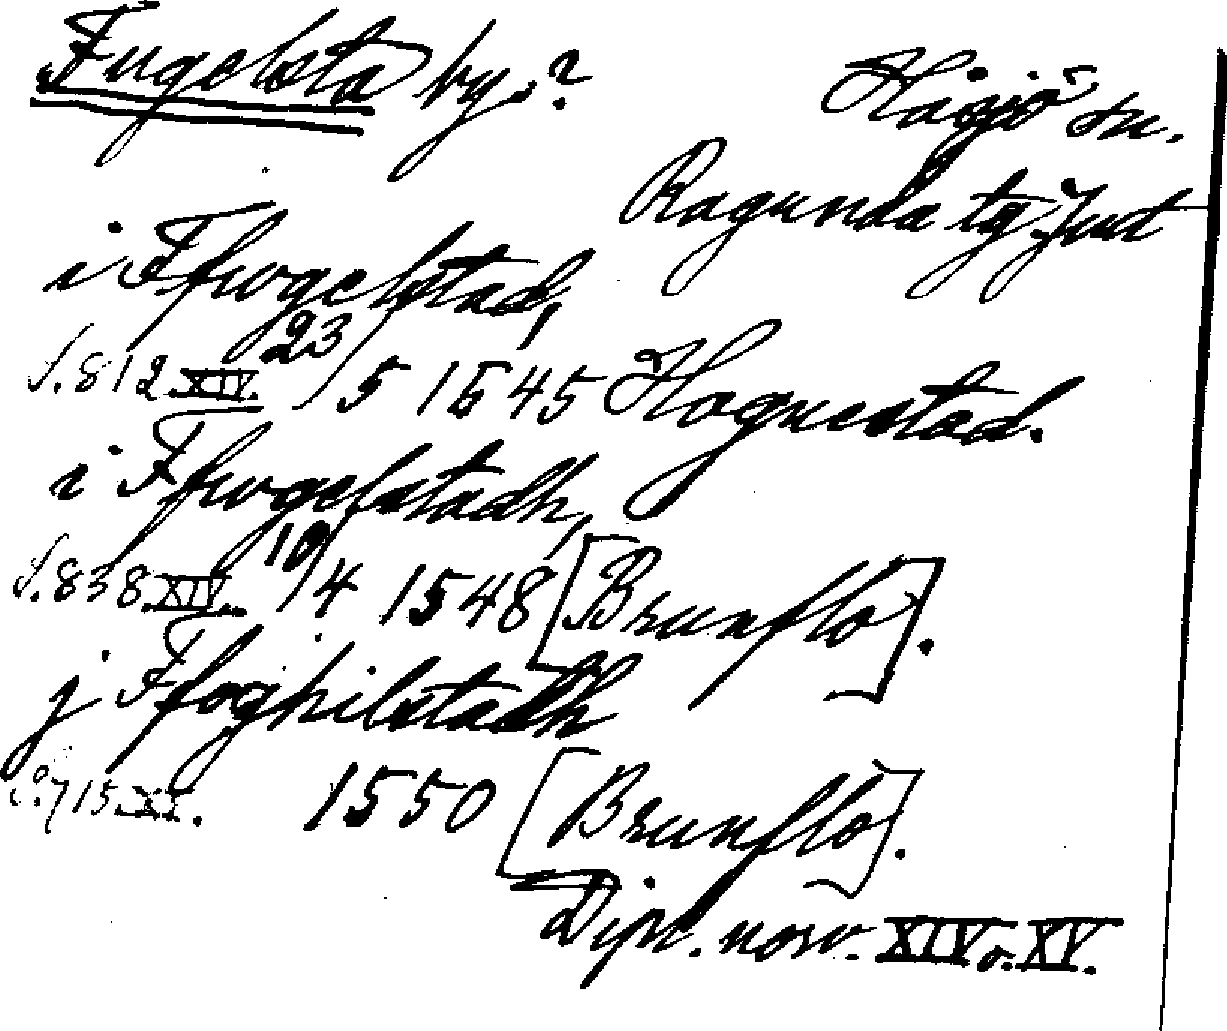 Fugelsta by.? Håsjö sn.
Ragunda tg Jmt
i Ffwgelstad,
S. 812 XIV. 23/5 1545 Hagnestad.
i Ffwgelstadh,
S. 838 XIV. 10/4 1548 [Brunflo].
j Ffoghilstadh
S. 715 XV. 1550 [Brunflo].
Dipl. norv. XIV o. XV.